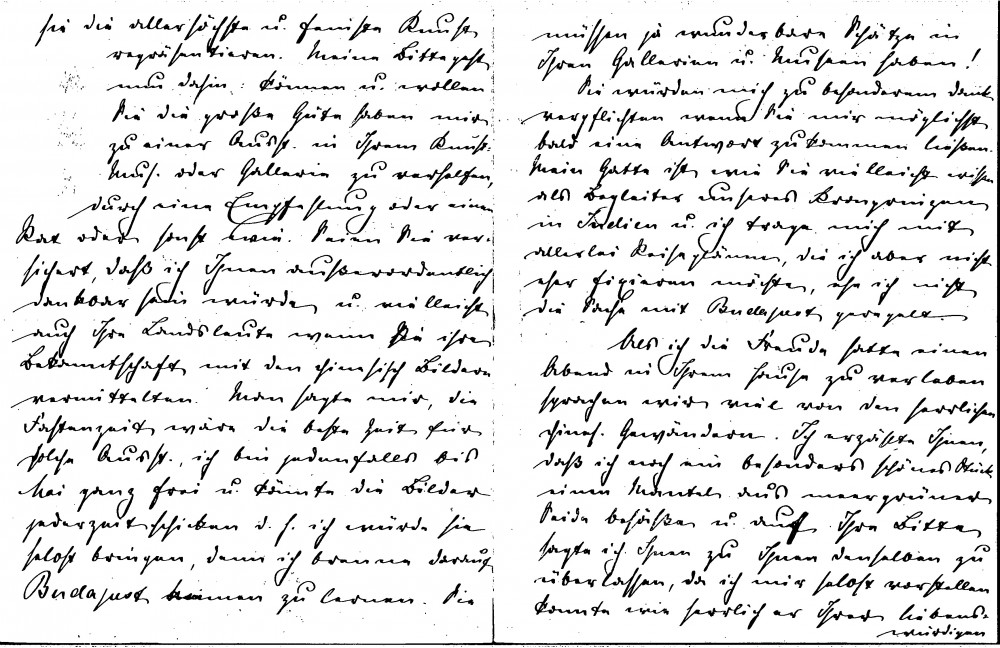 sie die allerhöchste u. feinste Kunst
repräsentieren. Meine Bitte geht
nun dahin: können u. wollen
Sie die große Güte haben mir
zu einer Ausst. in Ihrem Kunst-
Mus. oder Gallerie zu verhelfen,
durch eine Empfehlung oder einen
Rat oder sonst wie. Seien Sie ver-
sichert, daß ich Ihnen außerordentlich
dankbar sein würde u. vielleicht
auch Ihre Landsleute wenn Sie ihre
Bekanntschaft mit den chinesisch Bildern
vermittelten. Man sagte mir, die
Fastenzeit wäre die beste Zeit für
solche Ausst., ich bin jedenfalls bis
Mai ganz frei u. könnte die Bilder
jederzeit schicken d. h. ich würde sie
selbst bringen, denn ich brenne darauf
Budapest kennen zu lernen. Sie
müssen ja wunderbare Schätze in
Ihren Gallerien u. Museen haben!
Sie würden mich zu besonderem Dank
verpflichten wenn Sie mir möglichst
bald eine Antwort zukommen ließen.
Mein Gatte ist wie Sie vielleicht wissen
als Begleiter unseres Kronprinzen
in Indien u. ich trage mich mit
allerlei Reiseplänen, die ich aber nicht
eher fixieren möchte, ehe ich nicht
die Sache mit Budapest geregelt.
Als ich die Freude hatte einen
Abend in Ihrem Hause zu verleben
sprachen wir viel von den herrlichen
chines. Gewändern. Ich erzählte Ihnen,
daß ich noch ein besonders schönes Stück
einen Mantel aus meergrüner
Seide besäße u. auf Ihre Bitte
sagte ich Ihnen zu Ihnen denselben zu
überlassen, da ich mir selbst vorstellen
konnte wie herrlich er Ihrer liebens-
würdigen